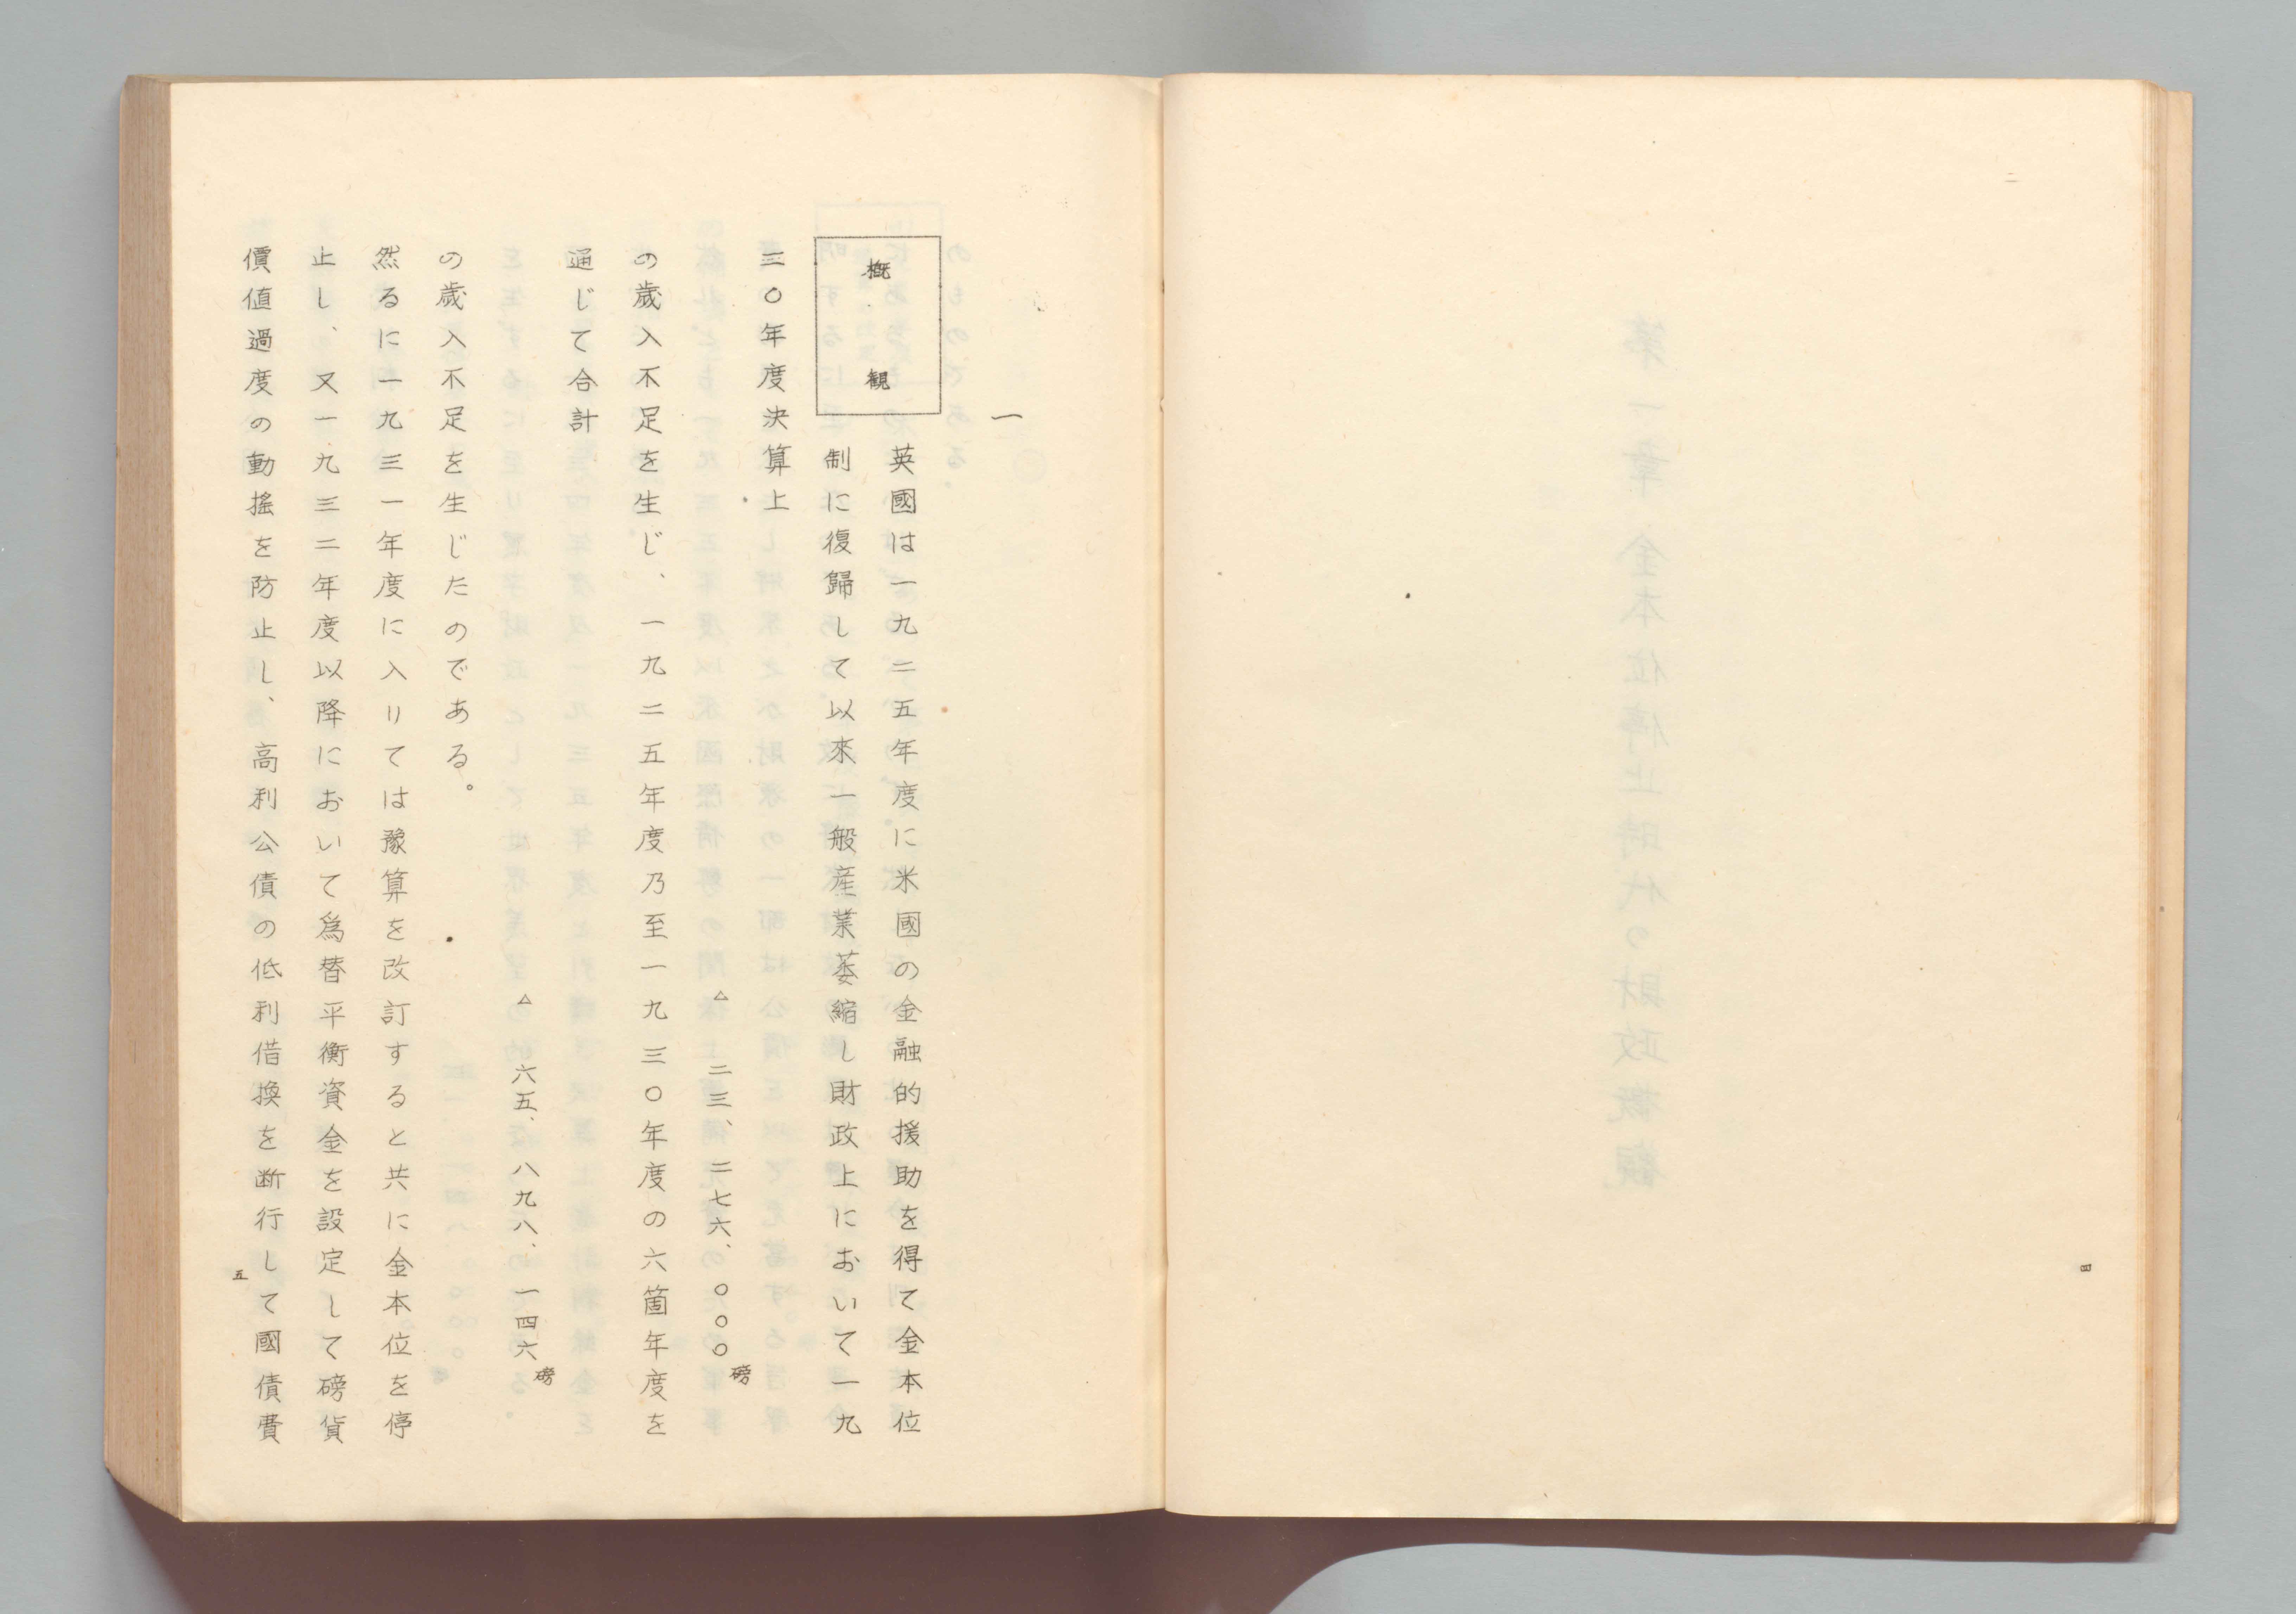 四
一
概観
英國は一九二五年度に米國の金融的援助を得て金本位
制に復歸して以來一般産業萎縮し財政上において一九
三〇年度決算上
△二三、二七六、〇〇〇磅
の歳入不足を生じ、一九二五年度乃至一九三〇年度の六箇年度を
通じて合計
△六五、八九八、一四六磅
の歳入不足を生じたのである。
然るに一九三一年度に入りては豫算を改訂すると共に金本位を停
止し、又一九三二年度以降において爲替平衡資金を設定して磅貨
價値過度の動搖を防止し、高利公債の低利借換を断行して國債費
五